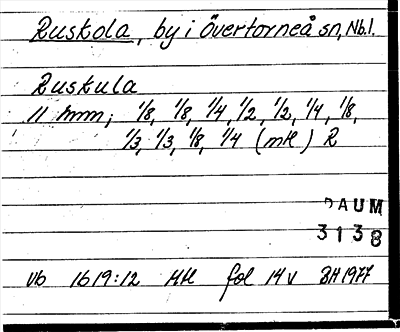 Ruskola, by i Övertorneå sn, Nb.l.
Ruskula
11 mm; 1/8, 1/8, 1/4, 1/2, 1/2, 1/4, 1/8,
1/3, 1/3, 1/8, 1/4 (mtl) R
DAUM
3138
Vb 1619:12 fol 14 v BH 1977